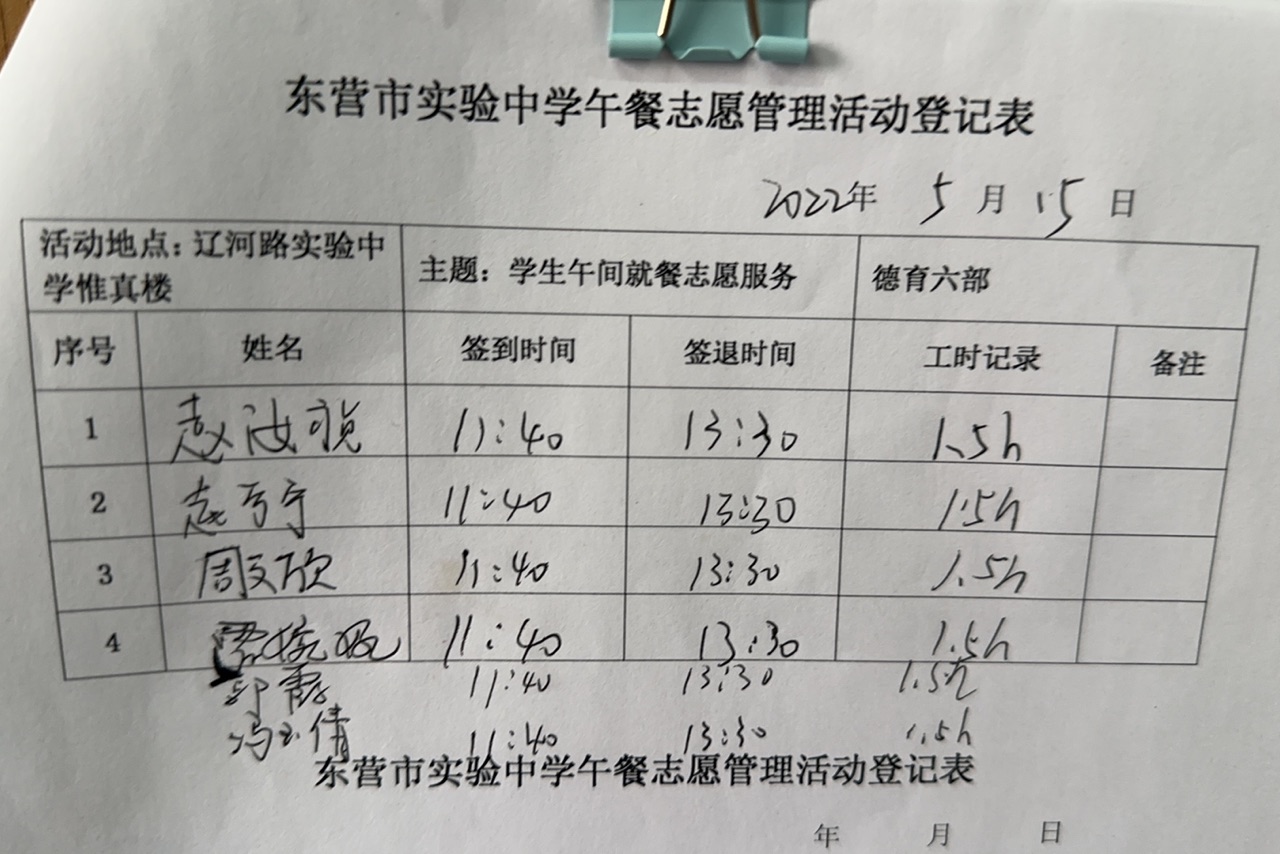 东营市实验中学午餐志愿管理活动登记表
2022年 5 月 15 日
活动地点：辽河路实验中学惟真楼 主题：学生午间就餐志愿服务 德育六部
序号 姓名 签到时间 签退时间 工时记录 备注
1 赵汝祯 11:40 13:30 1.5h
2 赵亏宁 11:40 13:30 1.5h
3 周文欣 11:40 13:30 1.5h
4 11:40 13:30 1.5h
郭霞 11:40 13:30 1.5h
冯玉倩 11:40 13:30 1.5h
东营市实验中学午餐志愿管理活动登记表
年 月 日